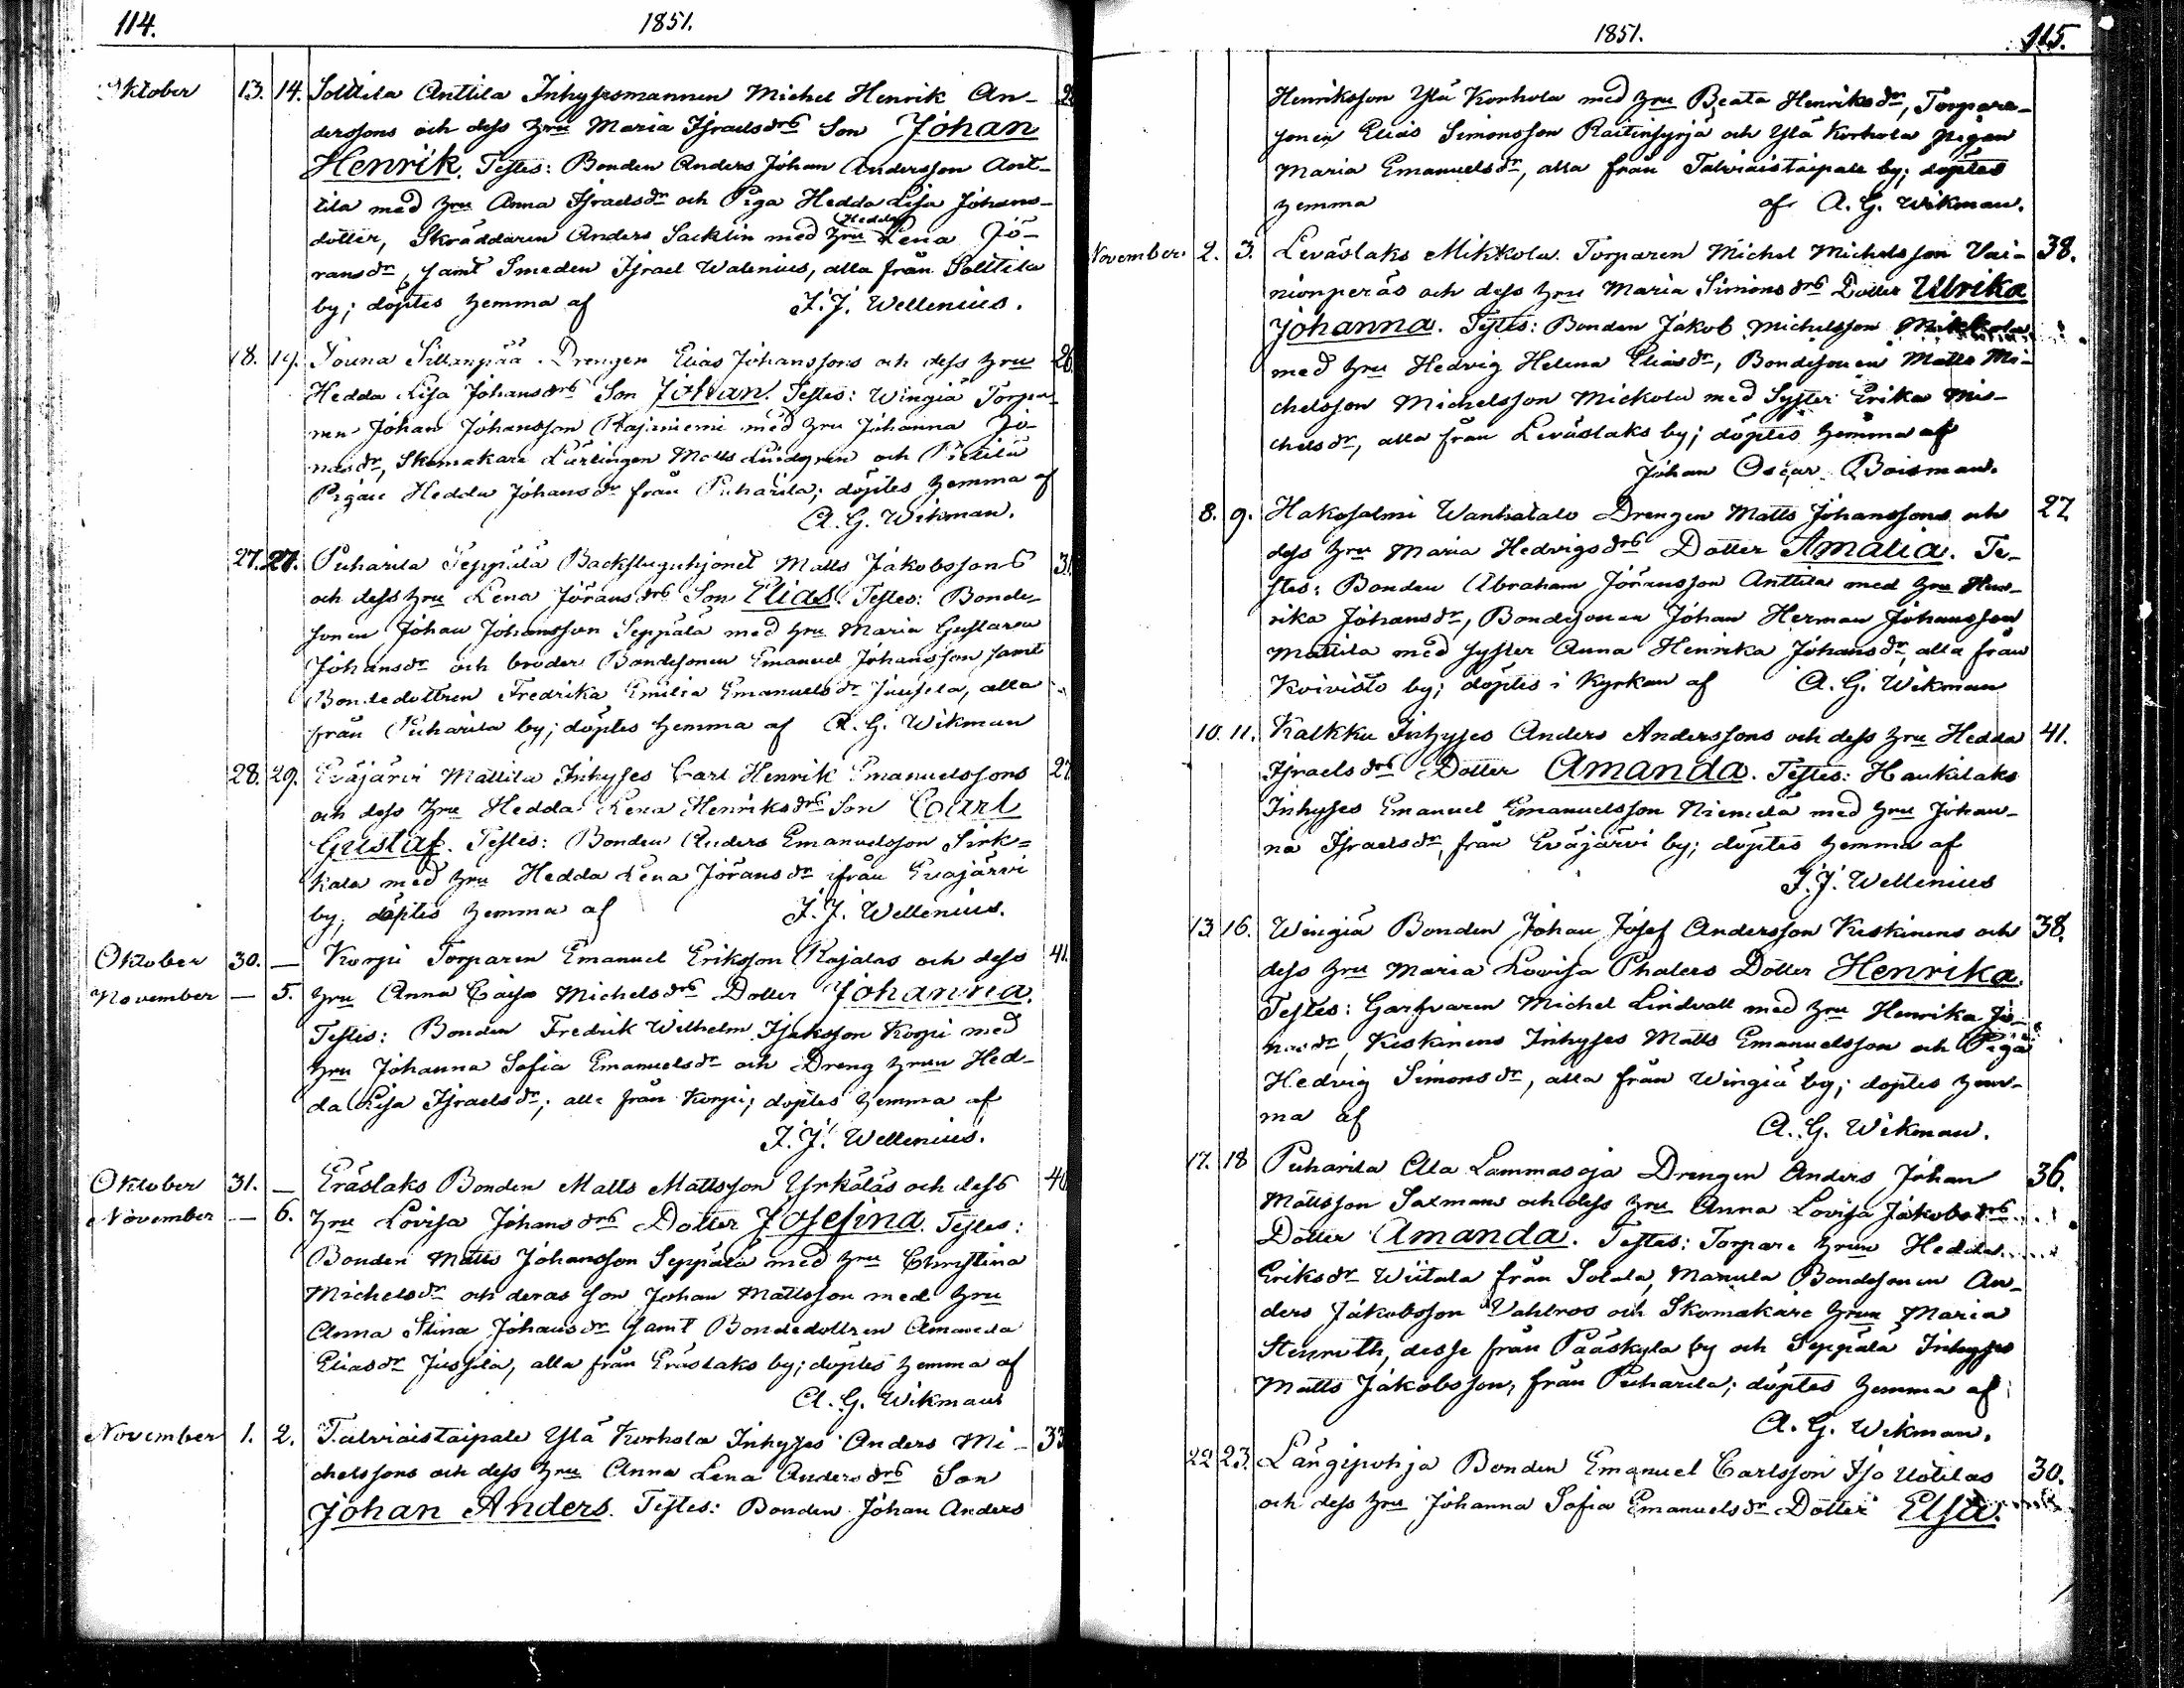 114. 1851.
Oktober 13. 14. Solttila Anttila Inhysesmannen Michel Henrik An-
derssons och dess hru Maria Israelsdrs Son Johan
Henrik. Testes: Bonden Anders Johan Andersson Ant-
tila med hru Anna Israelsdr och Piga Hedda Lisa Johans-
dotter, Skräddaren Anders Sacklin med hru Hedda Lena Jö-
ransdr, samt Smeden Israel Walenius, alla från Solttila
by; döptes hemma af J. J. Wellenius.
18. 19. Souna Sillanpää Drengen Elias Johanssons och dess hru
Hedda Lisa Johansdrs Son Johan. Testes: Wingiä Torpa-
ren Johan Johansson Rajaniemi med hru Johanna Jo-
nasdr, Skomakare Lärlingen Matts Lindgren och Pietilä
Pigan Hedda Johansdr från Puharila; döptes hemma af
A. G. Wikman.
27. 27. Puharila Seppälä Backstuguhjonet Matts Jakobssons 31
och dess hru Lena Jöransdrs Son Elias. Testes: Bonde-
sonen Johan Johansson Seppälä med hru Maria Gustava
Johansdr och broder Bondesonen Emanuel Johansson samt
Bondedottren Fredrika Emilia Emanuelsdr Jussila, alla
från Puharila by; döptes hemma af A. G. Wikman
28. 29. Eväjärvi Mattila Inhyses Carl Henrik Emanuelssons 27
och dess hru Hedda Lena Henriksdrs Son Carl
Gustaf. Testes: Bonden Anders Emanuelsson Sirk=
kala med hru Hedda Lena Jöransdr ifrån Eväjärvi
by, döptes hemma af J. J. Wellenius.
Oktober 30. — Korpi Torparen Emanuel Eriksson Rajalas och dess 41.
November — 5. hru Anna Caisa Michelsdrs Dotter Johanna.
Testes: Bonden Fredrik Wilhelm Isaksson Korpi med
hru Johanna Sofia Emanuelsdr och Dreng hrun Hed-
da Lisa Israelsdr; alla från Korpi; döptes hemma af
J. J. Wellenius.
Oktober 31. — Eräslaks Bonden Matts Mattsson Yrköläs och dess 40
November — 6. hru Lovisa Johansdrs Dotter Josefina. Testes:
Bonden Matts Johansson Seppälä med hru Christina
Michelsdr och deras son Johan Mattsson med hru
Anna Stina Johansdr samt Bondedottren Amanda
Eliasdr Jussila, alla från Eräslaks by; döptes hemma af
A. G. Wikman
November 1. 2. Talviaistaipale Ylä Korhola Inhyses Anders Mi- 33
chelssons och dess hru Anna Lena Andersdrs Son
Johan Anders. Testes: Bonden Johan Anders
1851. 115.
Henriksson Ylä Korhola med hru Beata Henriksdr, Torpare-
sonen Elias Simonsson Raitinsyrjä och Ylä Korhola pigan
Maria Emanuelsdr, alla från Talviaistaipale by; döptes
hemma af A. G. Wikman.
November 2. 3. Leväslaks Mikkola Torparen Michel Michelsson Vai- 38.
nionperäs och dess hru Maria Simonsdrs Dotter Ulrika
Johanna. Testes: Bonden Jakob Michelsson Mikkola
med hru Hedvig Helena Eliasdr, Bondesonen Matts Mi-
chelsson Michelsson Mickola med Syster Erika Mi-
chelsdr, alla från Leväslaks by; döptes hemma af
Johan Oscar Boisman.
8. 9. Hakosalmi Wanhatalo Drengen Matts Johanssons och 27
dess hru Maria Hedvigsdrs Dotter Amalia. Te-
stes: Bonden Abraham Jöransson Anttila med hru Hen-
rika Johansdr, Bondesonen Johan Herman Johansson
Mattila med syster Anna Henrika Johansdr, alla från
Koivisto by; döptes i Kyrkan af A. G. Wikman
10. 11. Kalkku Inhyses Anders Anderssons och dess hru Hedda 41.
Israelsdrs Dotter Amanda. Testes: Haukilaks
Inhyses Emanuel Emanuelsson Niemelä med hru Johan-
na Israelsdr, från Eväjärvi by; döptes hemma af
J. J. Wellenius
13. 16. Wingiä Bonden Johan Josef Andersson Keskinens och 38.
dess hru Maria Lovisa Phalers Dotter Henrika.
Testes: Garfvaren Michel Lindvall med hru Henrika Jo-
nasdr, Keskinens Inhyses Matts Emanuelsson och Piga
Hedvig Simonsdr, alla från Wingiä by; döptes hem-
ma af A. G. Wikman.
17. 18 Puharila Ala Lammasoja Drengen Anders Johan 36.
Mattsson Saxmans och dess hru Anna Lovisa Jakobsdrs
Dotter Amanda. Testes: Torpare hrun Hedda
Eriksdr Wiitala från Solala, Manula Bondesonen An-
ders Jakobsson Vahlros och Skomakare hrun Maria
Stenroth, desse från Pääskylä by och Seppälä Inhyses
Matts Jakobsson, från Puharila; döptes hemma af
A. G. Wikman.
22 23. Längipohja Bonden Emanuel Carlsson Iso Uotilas 30.
och dess hru Johanna Sofia Emanuelsdr Dotter Elsa.